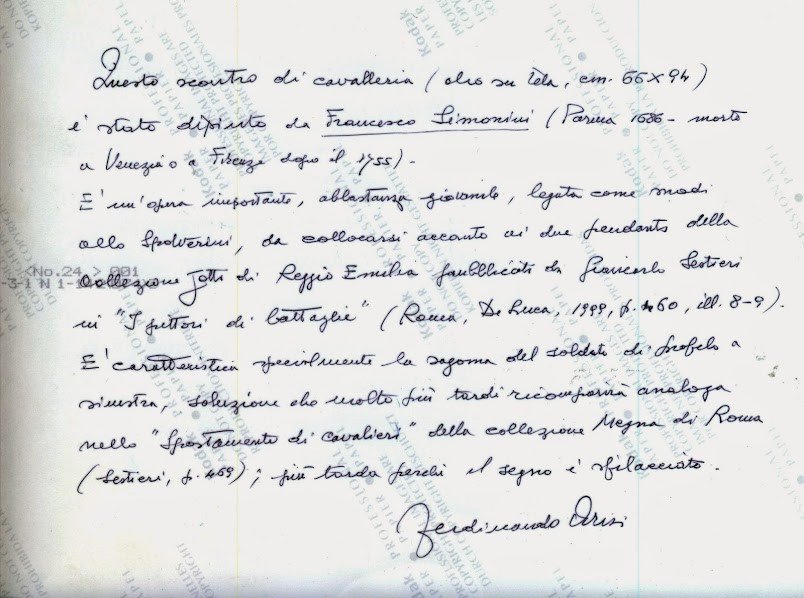 Questo scontro di cavalleria (olio su tela, cm. 66 x 94)
è stato dipinto da Francesco Simonini (Parma 1686 - morto
a Venezia o a Firenze dopo il 1755).
E' un'opera importante, abbastanza giovanile, legata come modi
allo Spolverini, da collocarsi accanto ai due pendants della
<No.24 > 001
collezione Jotti di Reggio Emilia pubblicati da Giancarlo Sestieri
-3-1 N 1-1
in "I pittori di battaglie" (Roma, De Luca, 1999, p. 460, ill. 8-9).
E' caratteristica specialmente la sagoma del soldato di profilo a
sinistra, soluzione che molto più tardi ricomparirà analoga
nello "Spostamento di cavalieri" della collezione Megna di Roma
(Sestieri, p. 469); più tarda perché il segno è sfilacciato.
Ferdinando Arisi
Kodak
PROFESSIONAL
PAPER
PAPEL